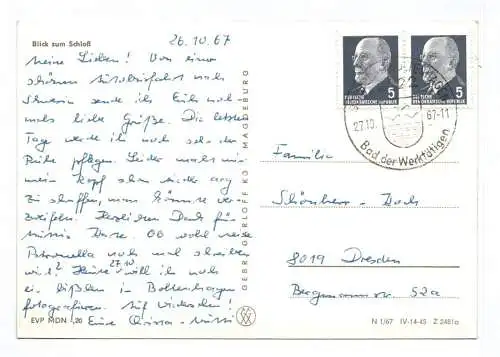 Blick zum Schloß
26.10.67
Meine Lieben! Von einer
schönen Autobusfahrt nach
Schwerin sende ich Euch noch-
mals liebe Grüße. Die letzten
Tage werde ich noch sehr der
Ruhe pflegen. Leider macht mir
mein Kopf schon wieder arg
zu schaffen, man könnte ver-
zweifeln. Herzlichen Dank für
Ob wohl meine
Petronella noch mal schreiben
wird? Heute 27.10. will ich noch
ein bißchen in Boltenhagen
fotografieren. Auf Wiedersehen!
Eure
EVP MDN -,20
GEBR. GARLOFF KG MAGDEBURG
5
DEUTSCHE
DEMOKRATISCHE REPUBLIK
5
DEUTSCHE
DEMOKRATISCHE REPUBLIK
27.10. 67-11
Bad der Werktätigen
Familie
Schönherr-Dach
8019 Dresden
Bergmannstr. 52a
N 1/67 IV-14-45 Z 2481a